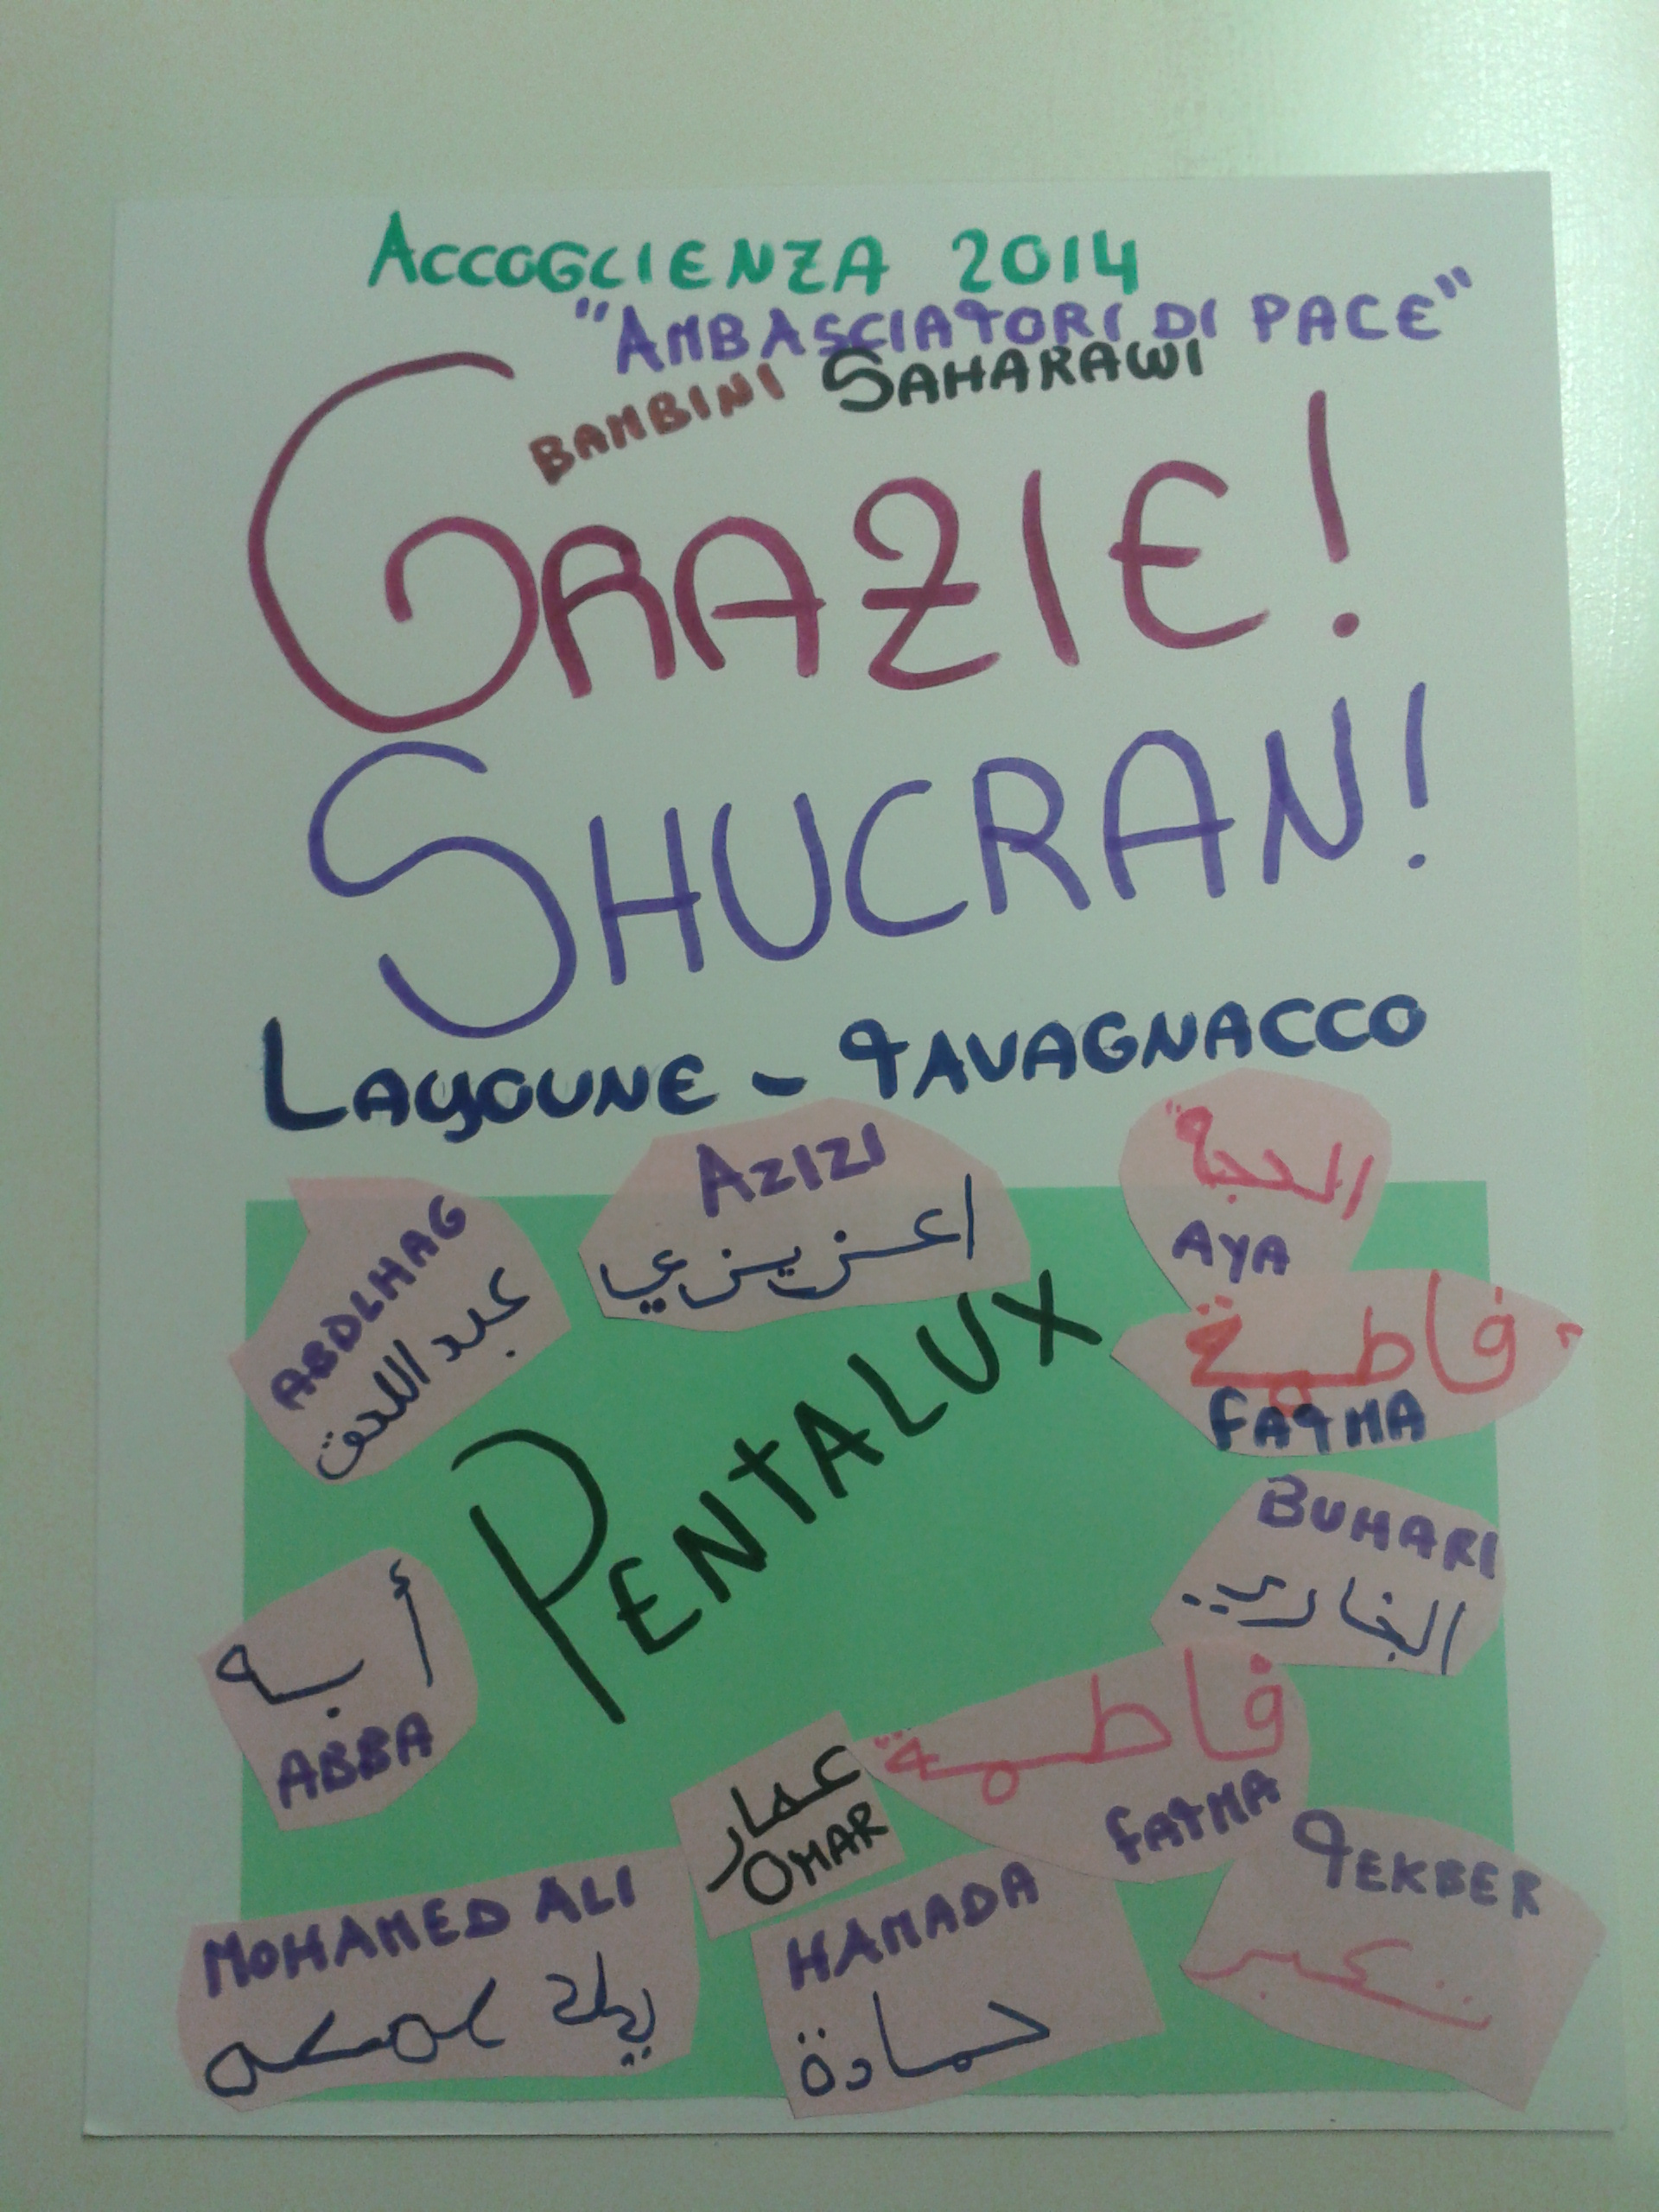 ACCOGLIENZA 2014
"AMBASCIATORI DI PACE"
BAMBINI SAHARAWI
GRAZIE!
SHUCRAN!
LAYOUNE - TAVAGNACCO
AZIZI
اعزيزي
الحجة
AYA
ABDLHAG
عبد اللحق
فاطمة
FATMA
PENTALUX
BUHARI
أبه
ABBA
فاطمة
FATMA
عمار
OMAR
TEKBER
تكبر
MOHAMED ALI
HAMADA
حمادة